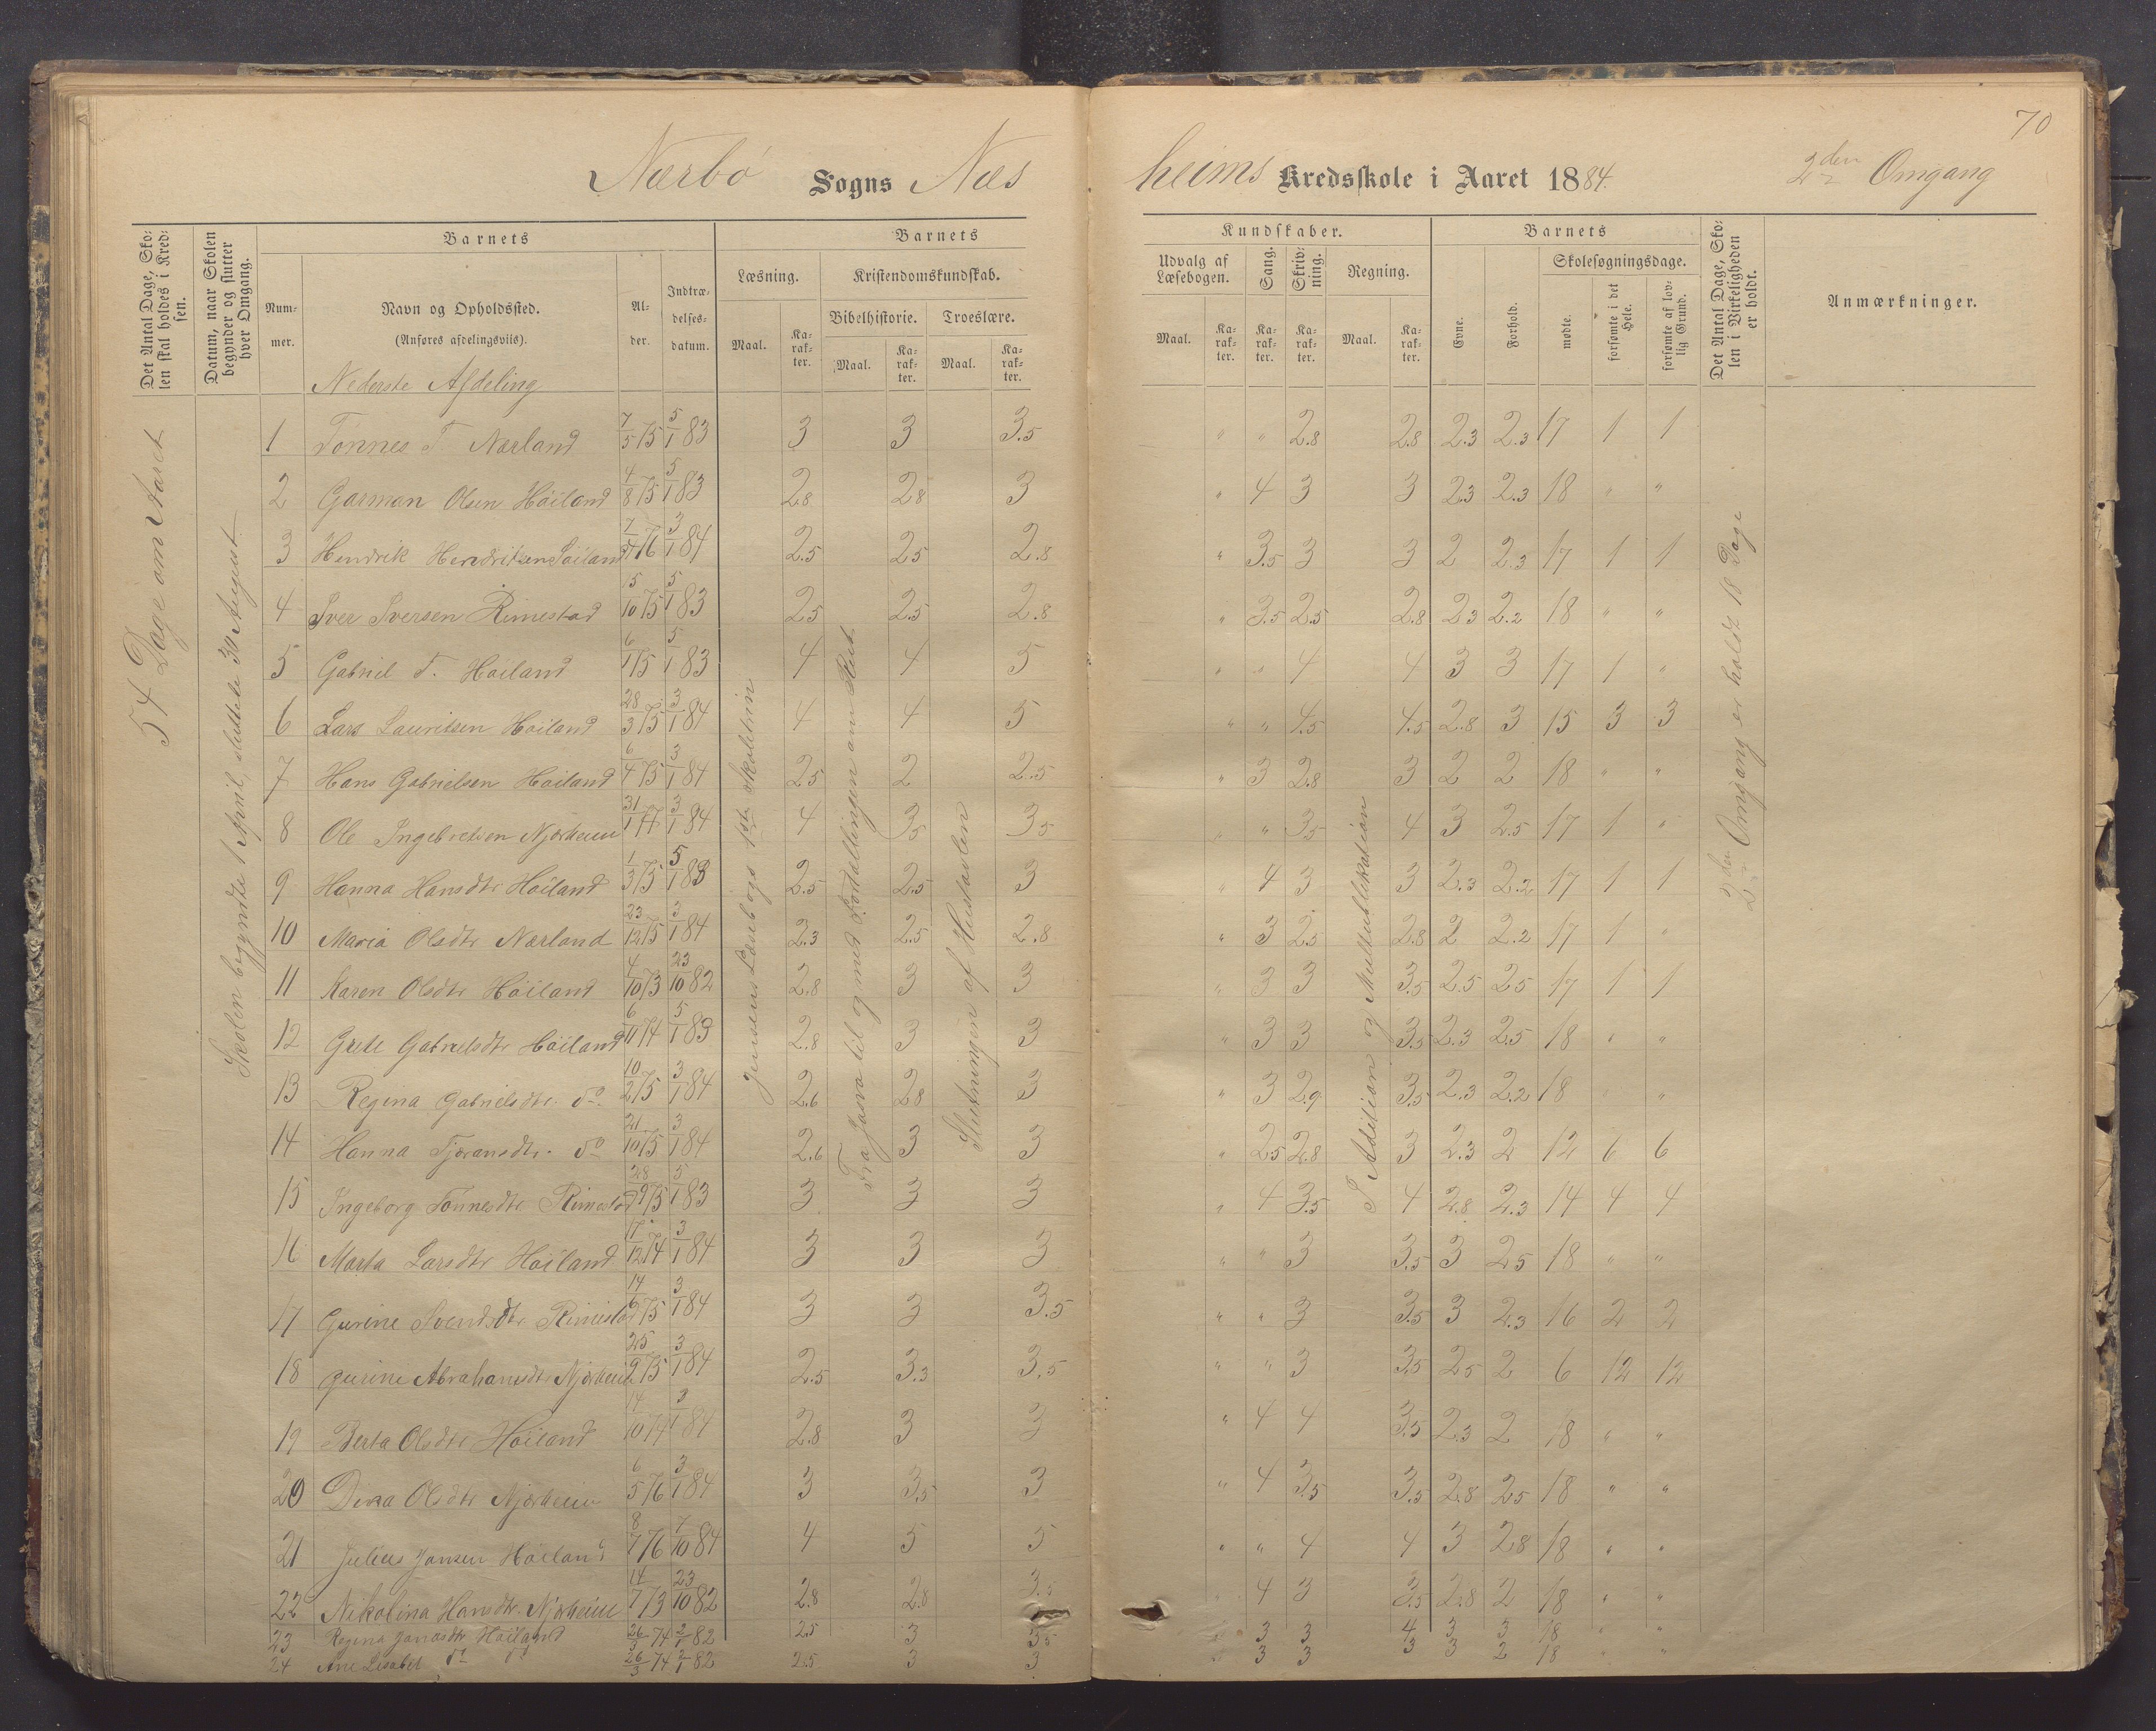 70
Nærbö Sogns Næsheims Kredsskole i Aaret 1884. 2den Omgang
Det Antal Dage, Skolen skal holdes i Kredsen.
Datum, naar Skolen begynder og slutter hver Omgang.
Barnets
Nummer.
Navn og Opholdssted.
(Anføres afdelingsvils).
Alder.
Indtrædelsesdatum.
Barnets
Læsning.
Maal.
Karakter.
Kristendomskundskab.
Bibelhistorie.
Maal.
Karakter.
Troeslære.
Maal.
Karakter.
Kundskaber.
Udvalg af Læsebogen.
Maal.
Karakter.
Sang.
Karakter.
Skrivning.
Karakter.
Regning.
Maal.
Karakter.
Barnets
Evne.
Forhold.
Skolesøgningsdage.
mødte.
forsømte i det Hele.
forsømte af lovlig Grund.
Det Antal Dage, Skolen i Virkeligheden er holdt.
Anmærkninger.
Nederste Afdeling
54 Dage om Aaret
Skolen begyndte 1 April, sluttede 30 August
Jensens Læsebogs 1ste Skoletrin
Fra Josva til og med Fortællingen om Rut
Slutningen af Hustavlen
I Adition og Multiblikation
2den Omgang er holdt 18 Dage
1 Tönnes T Nærland 7/5 75 5/1 83 3 3 3.5 " " 2.8 2.8 2.3 2.3 17 1 1
2 Garman Olsen Höiland 4/8 75 5/1 83 2.8 2.8 3 " 4 3 3 2.3 2.3 18 " "
3 Hendrik Hendriksen Höiland 7/4 76 3/1 84 2.5 2.5 2.8 " 3.5 3 3 2 2.3 17 1 1
4 Iver Iversen Rimestad 5/10 75 5/1 83 2.5 2.5 2.8 " 3.5 2.5 2.8 2.3 2.2 18 " "
5 Gabriel T. Höiland 6/1 75 5/1 83 4 4 5 " " 4 4 3 3 17 1 "
6 Lars Lauritsen Höiland 28/3 75 3/1 84 4 4 5 " " 4.5 4.5 2.8 3 15 3 3
7 Hans Gabrielsen Höiland 6/4 75 3/1 84 2.5 2 2.5 " 3 2.8 3 2 2 18 " "
8 Ole Ingebretsen Njærheim 31/1 77 3/1 84 4 3.5 3.5 " " 3.5 4 3 2.5 17 1 "
9 Hanna Hansdtr Höiland 1/3 75 5/1 83 2.5 2.5 3 " 4 3 3 2.3 2.2 17 1 1
10 Maria Olsdtr Nærland 23/12 75 3/1 84 2.3 2.5 2.8 " 3 2.5 2.8 2 2.2 17 1 "
11 Karen Olsdtr Höiland 4/10 73 23/10 82 2.8 3 3 " 3 3 3.5 2.5 2.5 17 1 1
12 Grete Gabrielsdtr Höiland 6/11 74 5/1 83 2.8 3 3 " 3 3 3.5 2.3 2.5 18 " "
13 Regina Gabrielsdtr. do 10/2 75 3/1 84 2.6 2.8 3 " 3 2.9 3.5 2.3 2.2 18 " "
14 Hanna Tjøransdtr. do 21/10 75 3/1 84 2.6 3 3 " 2.5 2.8 3 2.3 2 12 6 6
15 Ingeborg Tönnesdtr Rimestad 28/9 75 5/1 83 3 3 3 " 4 3.5 4 2.8 2.3 14 4 4
16 Marta Larsdtr Höiland 17/12 74 3/1 84 3 3 3 " " 3 3.5 3 2.5 18 " "
17 Gurine Svendsdtr Rimestad 14/6 75 3/1 84 3 3 3.5 " " 3 3.5 3 2.3 16 2 2
18 Gurine Abrahamsdtr Njærheim 25/9 75 3/1 84 2.5 3.3 3.5 " " 3 3.5 2.5 2 6 12 12
19 Berta Olsdtr Höiland 14/10 74 3/1 84 2.8 3 3 " 4 4 3.5 2.3 2 18 " "
20 Dina Olsdtr Njærheim 6/5 76 3/1 84 3 3.5 3 " 4 3.5 3.5 2.8 2.5 18 " "
21 Julius Jansen Höiland 8/7 76 7/10 84 4 5 5 " " 4 4 3 2.8 18 " "
22 Nikolina Hansdtr. Njærheim 14/7 73 23/10 82 2.8 2.8 3.5 " 4 3 3.5 2.8 2 18 " "
23 Regina Jonasdtr Höiland 26/3 74 2/1 82 2.5 3 3.5 " 3 3 4 3 3 18 " "
24 Ane Lisabet do do 26/3 74 2/1 82 2.5 3 3 " 3 3 3 3 2 18 " "